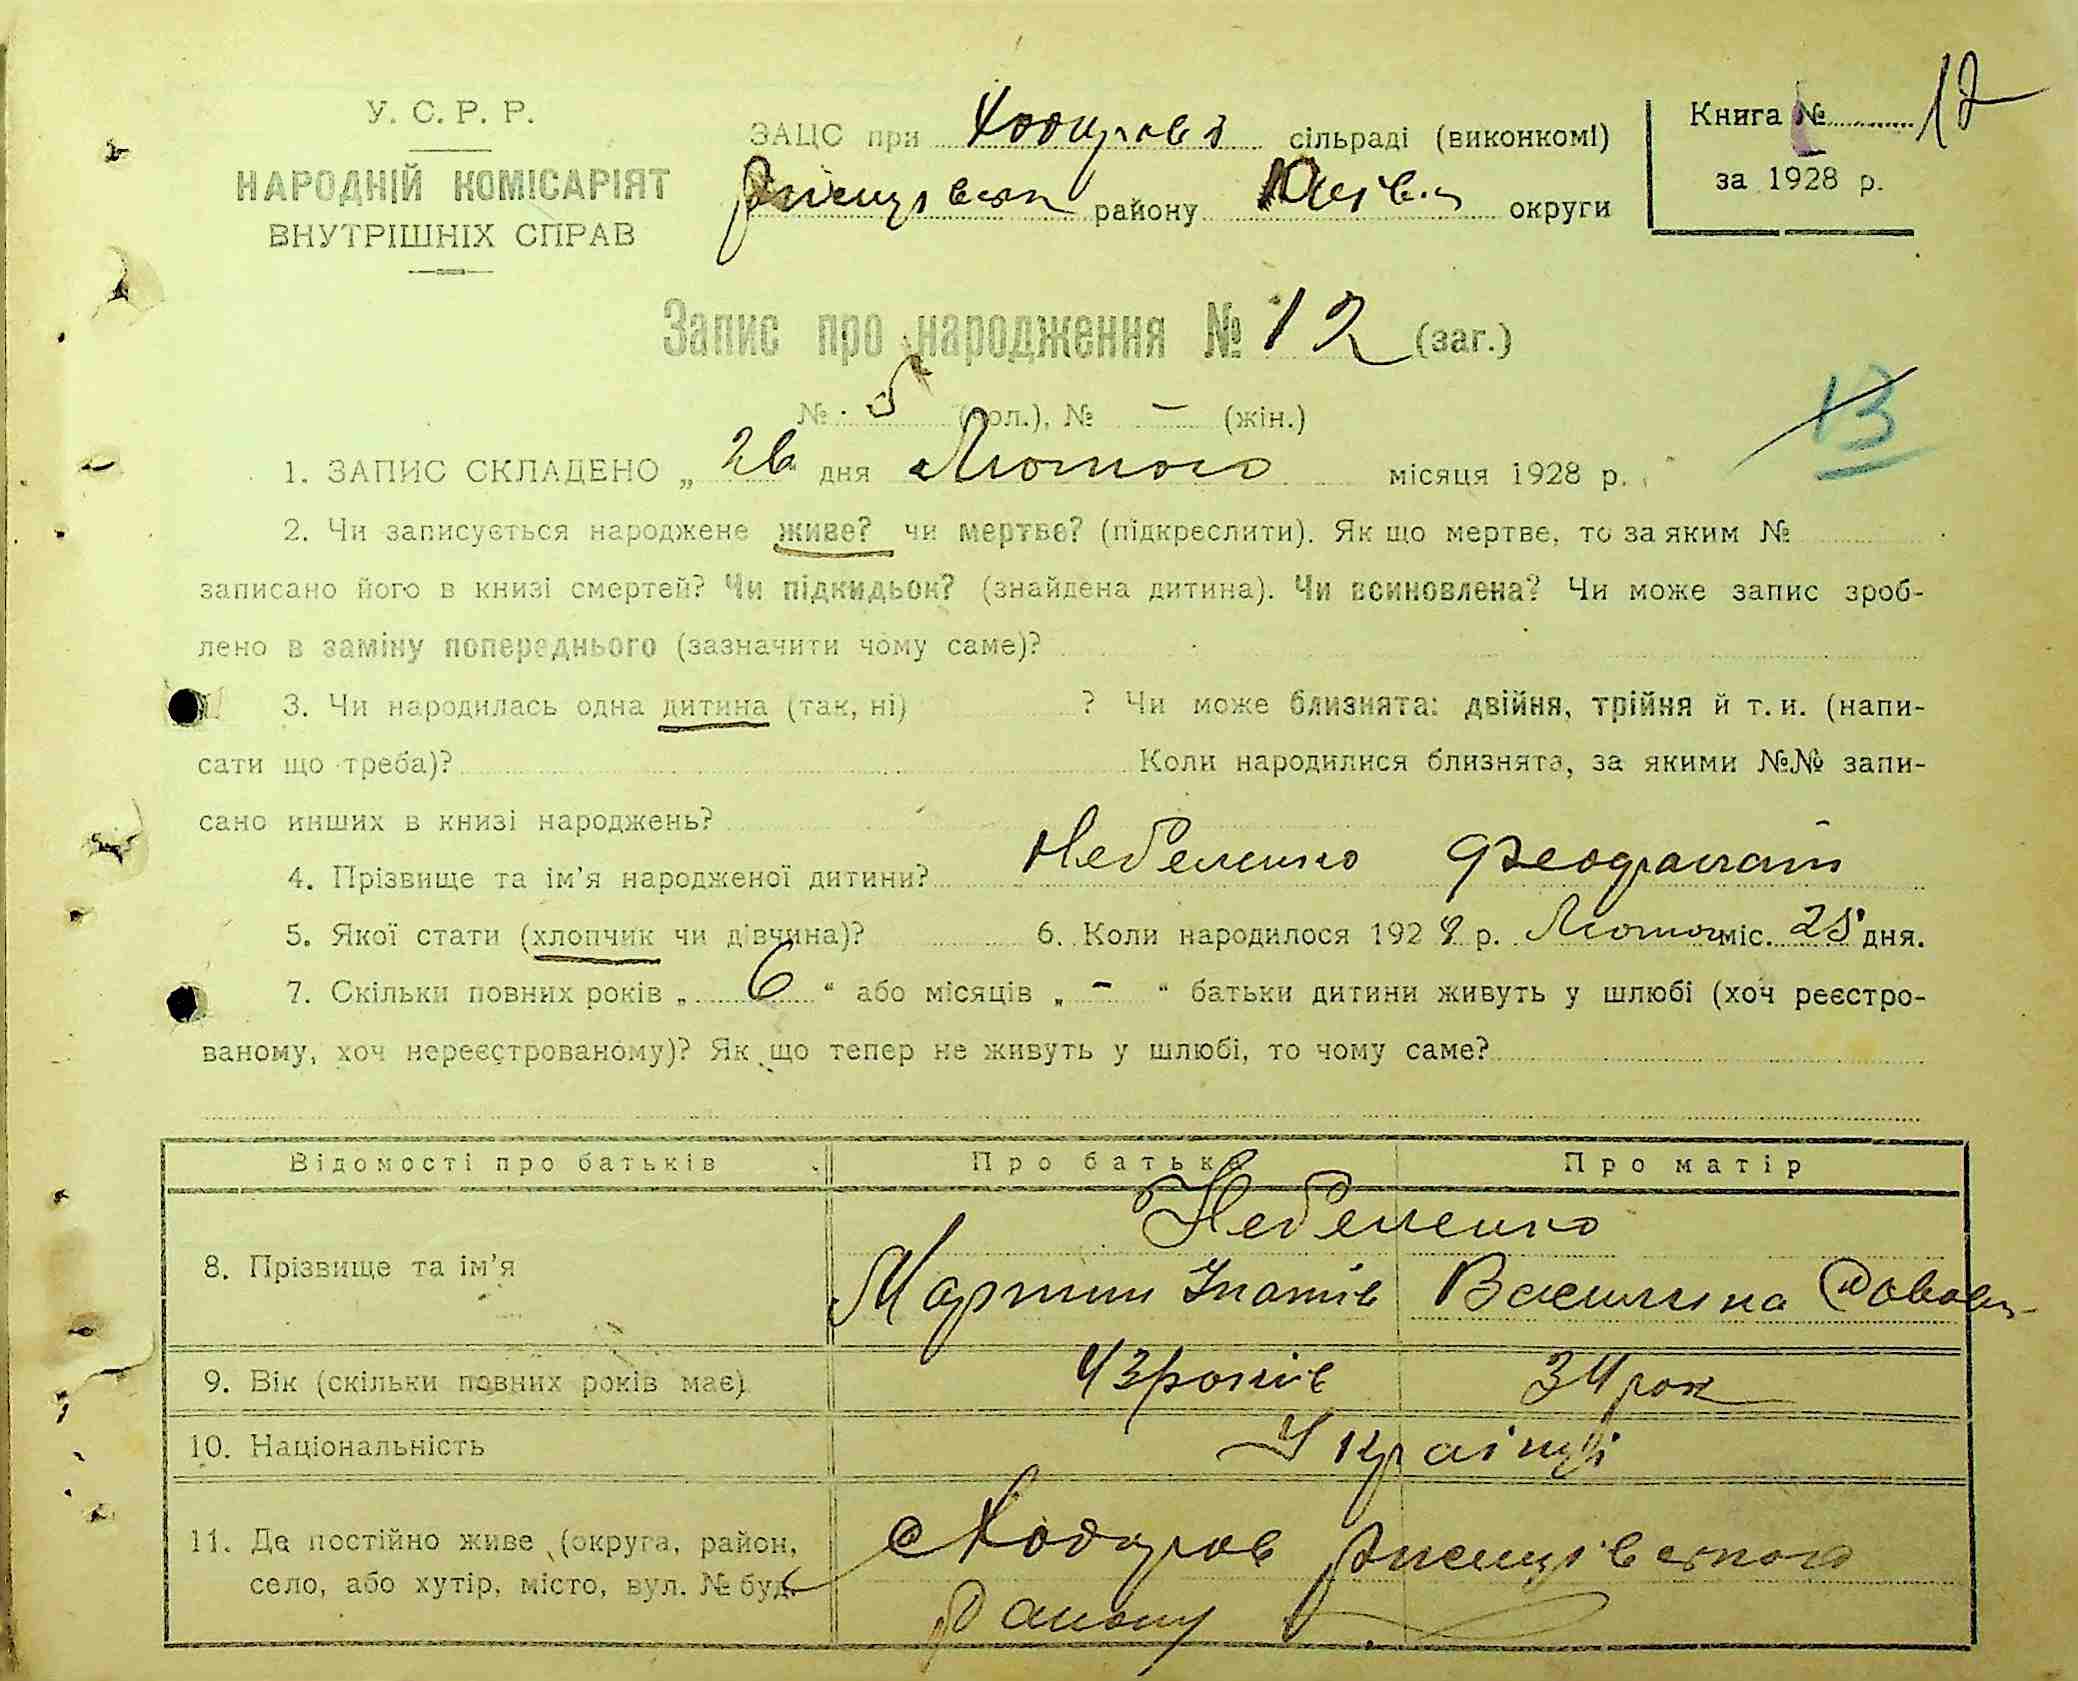 У. С. Р. Р.
НАРОДНІЙ КОМІСАРІЯТ
ВНУТРІШНІХ СПРАВ
ЗАЦС при Ходорові сільраді (виконкомі)
району округи
Книга № 12
за 1928 р.
Запис про народження № 12 (заг.)
№ 5 (чол.), № – (жін.)
13
1. ЗАПИС СКЛАДЕНО „ 26 " дня Лютого місяця 1928 р.
2. Чи записується народжене живе? чи мертве? (підкреслити). Як що мертве, то за яким №
записано його в книзі смертей? Чи підкидьок? (знайдена дитина). Чи всиновлена? Чи може запис зроб-
лено в заміну попереднього (зазначити чому саме)?
3. Чи народилась одна дитина (так, ні) ? Чи може близнята: двійня, трійня й т. и. (напи-
сати що треба)? Коли народилися близнята, за якими №№ запи-
сано инших в книзі народжень?
4. Прізвище та ім'я народженої дитини? Небеленко
5. Якої стати (хлопчик чи дівчина)? 6. Коли народилося 1928 р. Лютого міс. 25 дня.
7. Скільки повних років „ 6 " або місяців „ – " батьки дитини живуть у шлюбі (хоч реєстро-
ваному, хоч нереєстрованому)? Як що тепер не живуть у шлюбі, то чому саме?
Відомості про батьків Про батька Про матір
Небеленко
8. Прізвище та ім'я Мартин Ігнатів Василина
9. Вік (скільки повних років має) 43 років 34 рок
10. Національність Українці
11. Де постійно живе (округа, район, с Ходоров Ржищівського
село, або хутір, місто, вул. № буд. Району